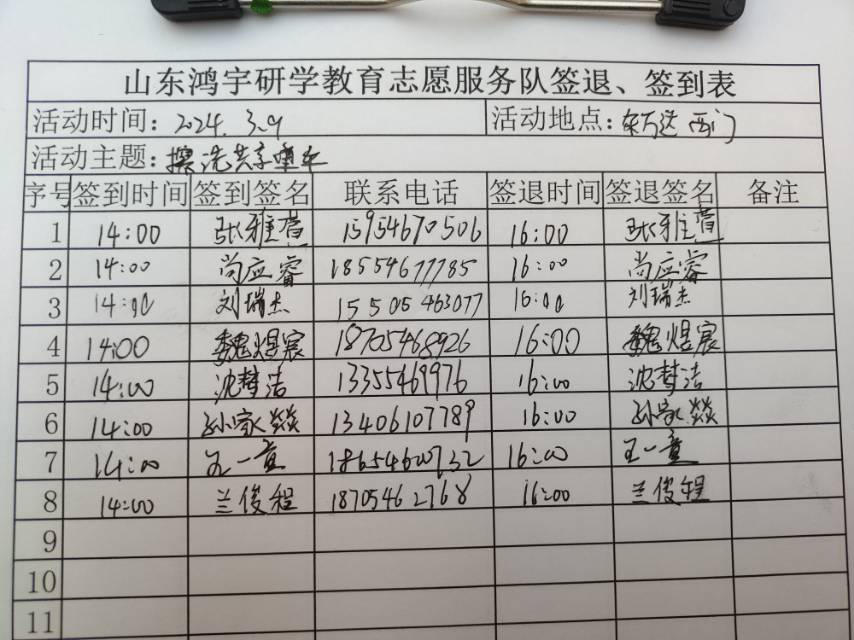 山东鸿宇研学教育志愿服务队签退、签到表
活动时间：2024.3.9 活动地点：东万达 西门
活动主题：擦洗共享单车
序号 签到时间 签到签名 联系电话 签退时间 签退签名 备注
1 14:00 张雅萱 15954670506 16:00 张雅萱
2 14:00 尚应睿 18554677785 16:00 尚应睿
3 14:00 刘瑞杰 15505463077 16:00 刘瑞杰
4 14:00 魏煜宸 18705468926 16:00 魏煜宸
5 14:00 沈梦洁 13355469976 16:00 沈梦洁
6 14:00 孙家燚 13406107789 16:00 孙家燚
7 14:00 王一童 18654600732 16:00 王一童
8 14:00 兰俊程 18705462768 16:00 兰俊程
9
10
11